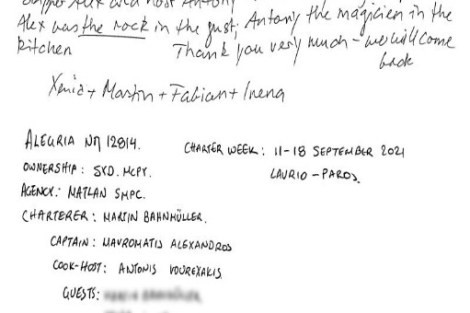 Alex was the rock in the gust, Antony the magicien in the
kitchen Thank you very much - we will come
back
Xenia + Martin + Fabian + Irena
ALEGRIA NП 12814.
CHARTER WEEK: 11-18 SEPTEMBER 2021
OWNERSHIP: SYD. MCPY.
LAVRIO - PAROS.
AGENCY: MATLAN SMPC.
CHARTERER: MARTIN BAHNMÜLLER.
CAPTAIN: MAVROMATIS ALEXANDROS
COOK-HOST: ANTONIS VOUREXAKIS.
GUESTS: